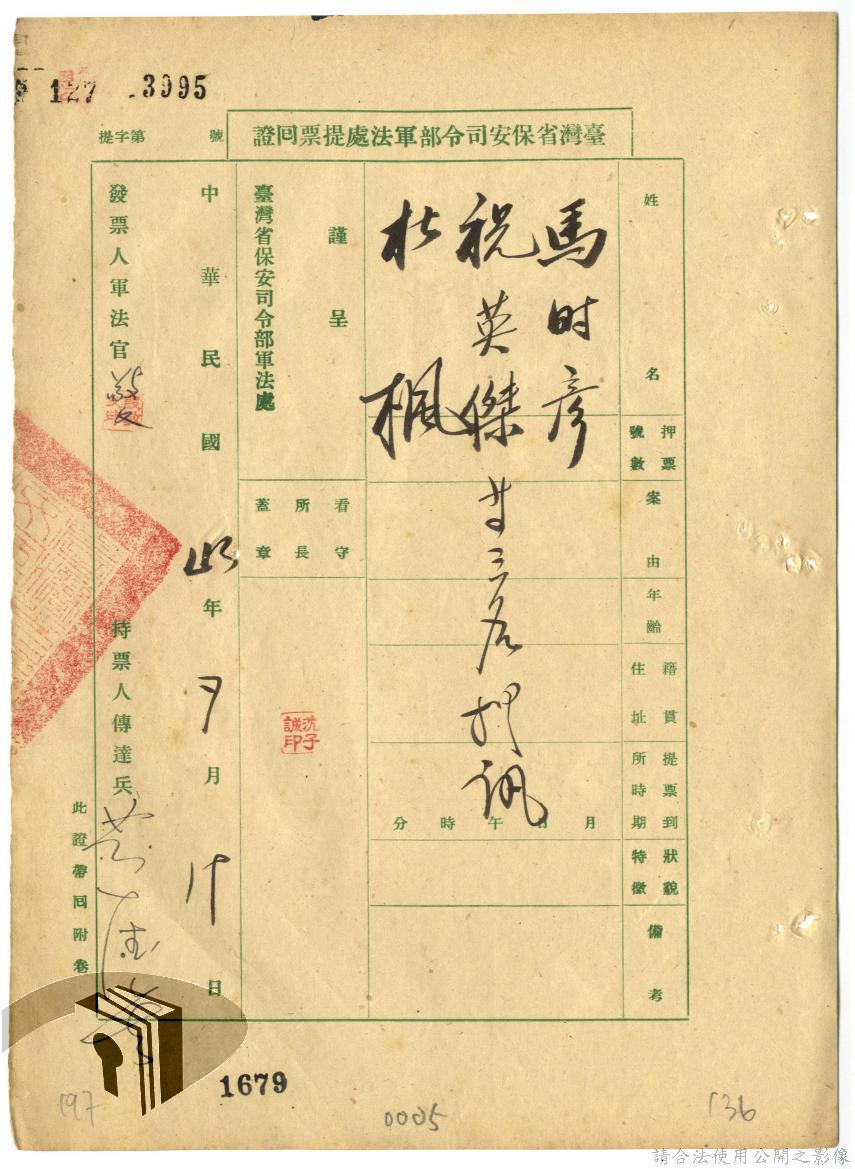 127 3995
臺灣省保安司令部軍法處提票回證
提字第 號
姓名
押票號數
案由
年齡
籍貫住址
提票到所時期
狀貌特徵
備考
馬时彥
祝英傑
杜楓
三名
訊
月 日 午 時 分
謹呈
臺灣省保安司令部軍法處
看守所長蓋章
沈子誠印
中華民國 年 月 日
發票人軍法官
持票人傳達兵
此證帶回附卷
1679
197
0005
136
請合法使用公開之影像